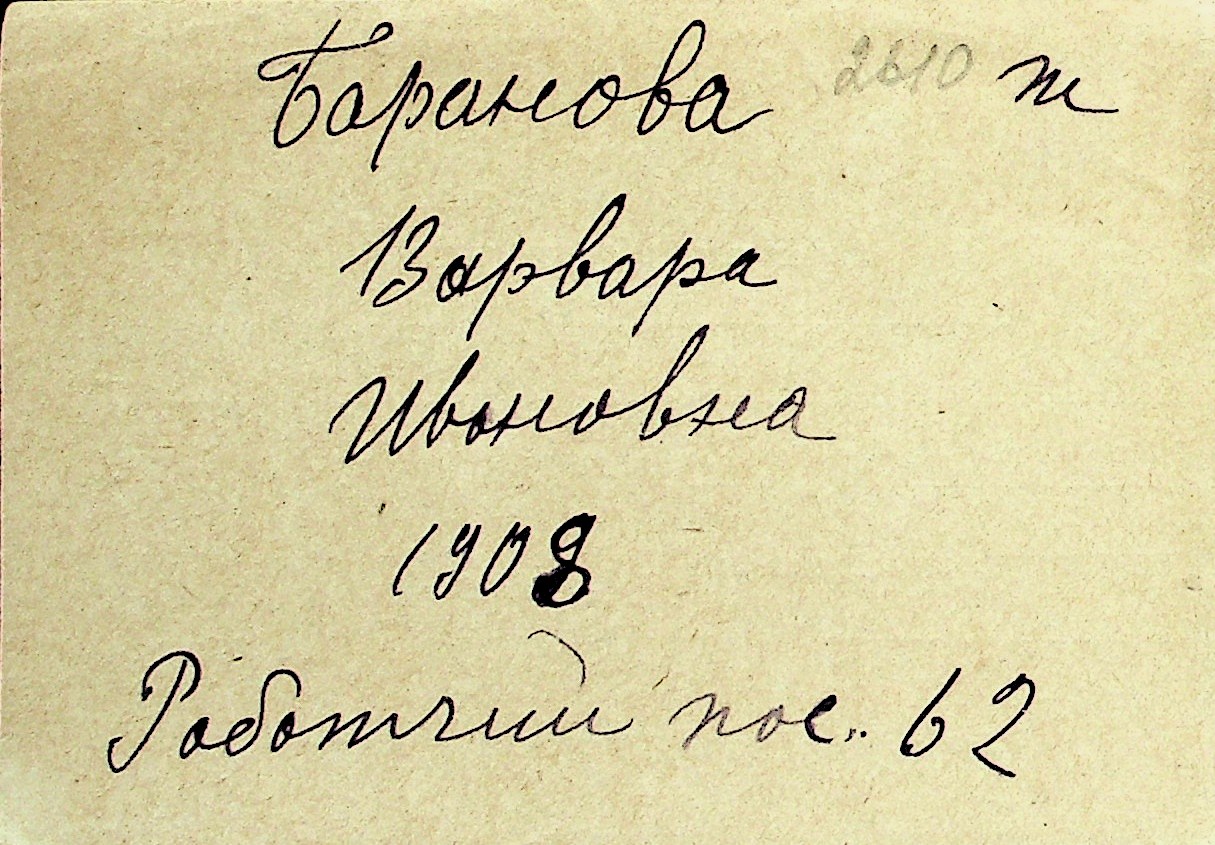 Баранова 2610 ж
Варвара
Ивановна
1908
Работчий пос. 62